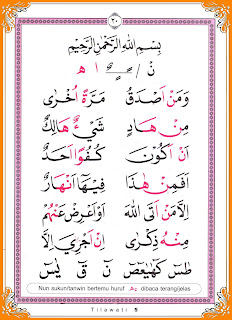 ٢٠
بِسْمِ اللهِ الرَّحْمٰنِ الرَّحِيْمِ
نْ / ـًـٍـٌ ا هـ
وَمَنْ اَصْدَقُ مَرَّةً اُخْرٰى
مِنْ هَادٍ شَيْءٌ هَالِكٌ
اَنْ اَكُوْنَ كُفُوًا اَحَدٌ
اَفَمِنْ هٰذَا فِيْهَا اَنْهَارٌ
اِلَّا مَنْ اَتَى اللهَ اَوْ اَعْرِضْ عَنْهُمْ
مِنْهُ ذِكْرٰى اِنْ اَجْرِيَ اِلَّا
طٰسٓ كٓهٰيٰعٓصٓ نٓ قٓ يٰسٓ
Nun sukun/tanwin bertemu huruf هـ، ا dibaca terang/jelas
Tilawati 5